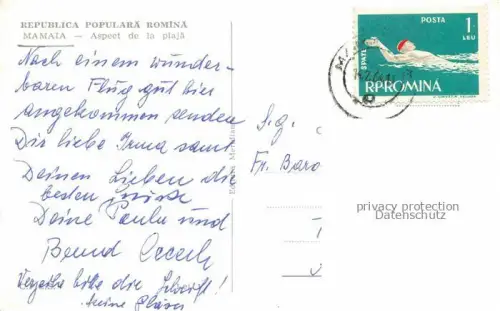 REPUBLICA POPULARĂ ROMÎNĂ
MAMAIA — Aspect de la plajă
Nach einem wunder-
baren Flug gut hier
angekommen senden
Dir liebe Irma samt
Deinen Lieben die
besten Grüße
Deine Paula und
Bernd
Verzeihe bitte die Schrift!
keine
Editura Meridiane
Fr. Baro
POSTA
1
LEU
SPATE
RPROMINA
privacy protection
Datenschutz